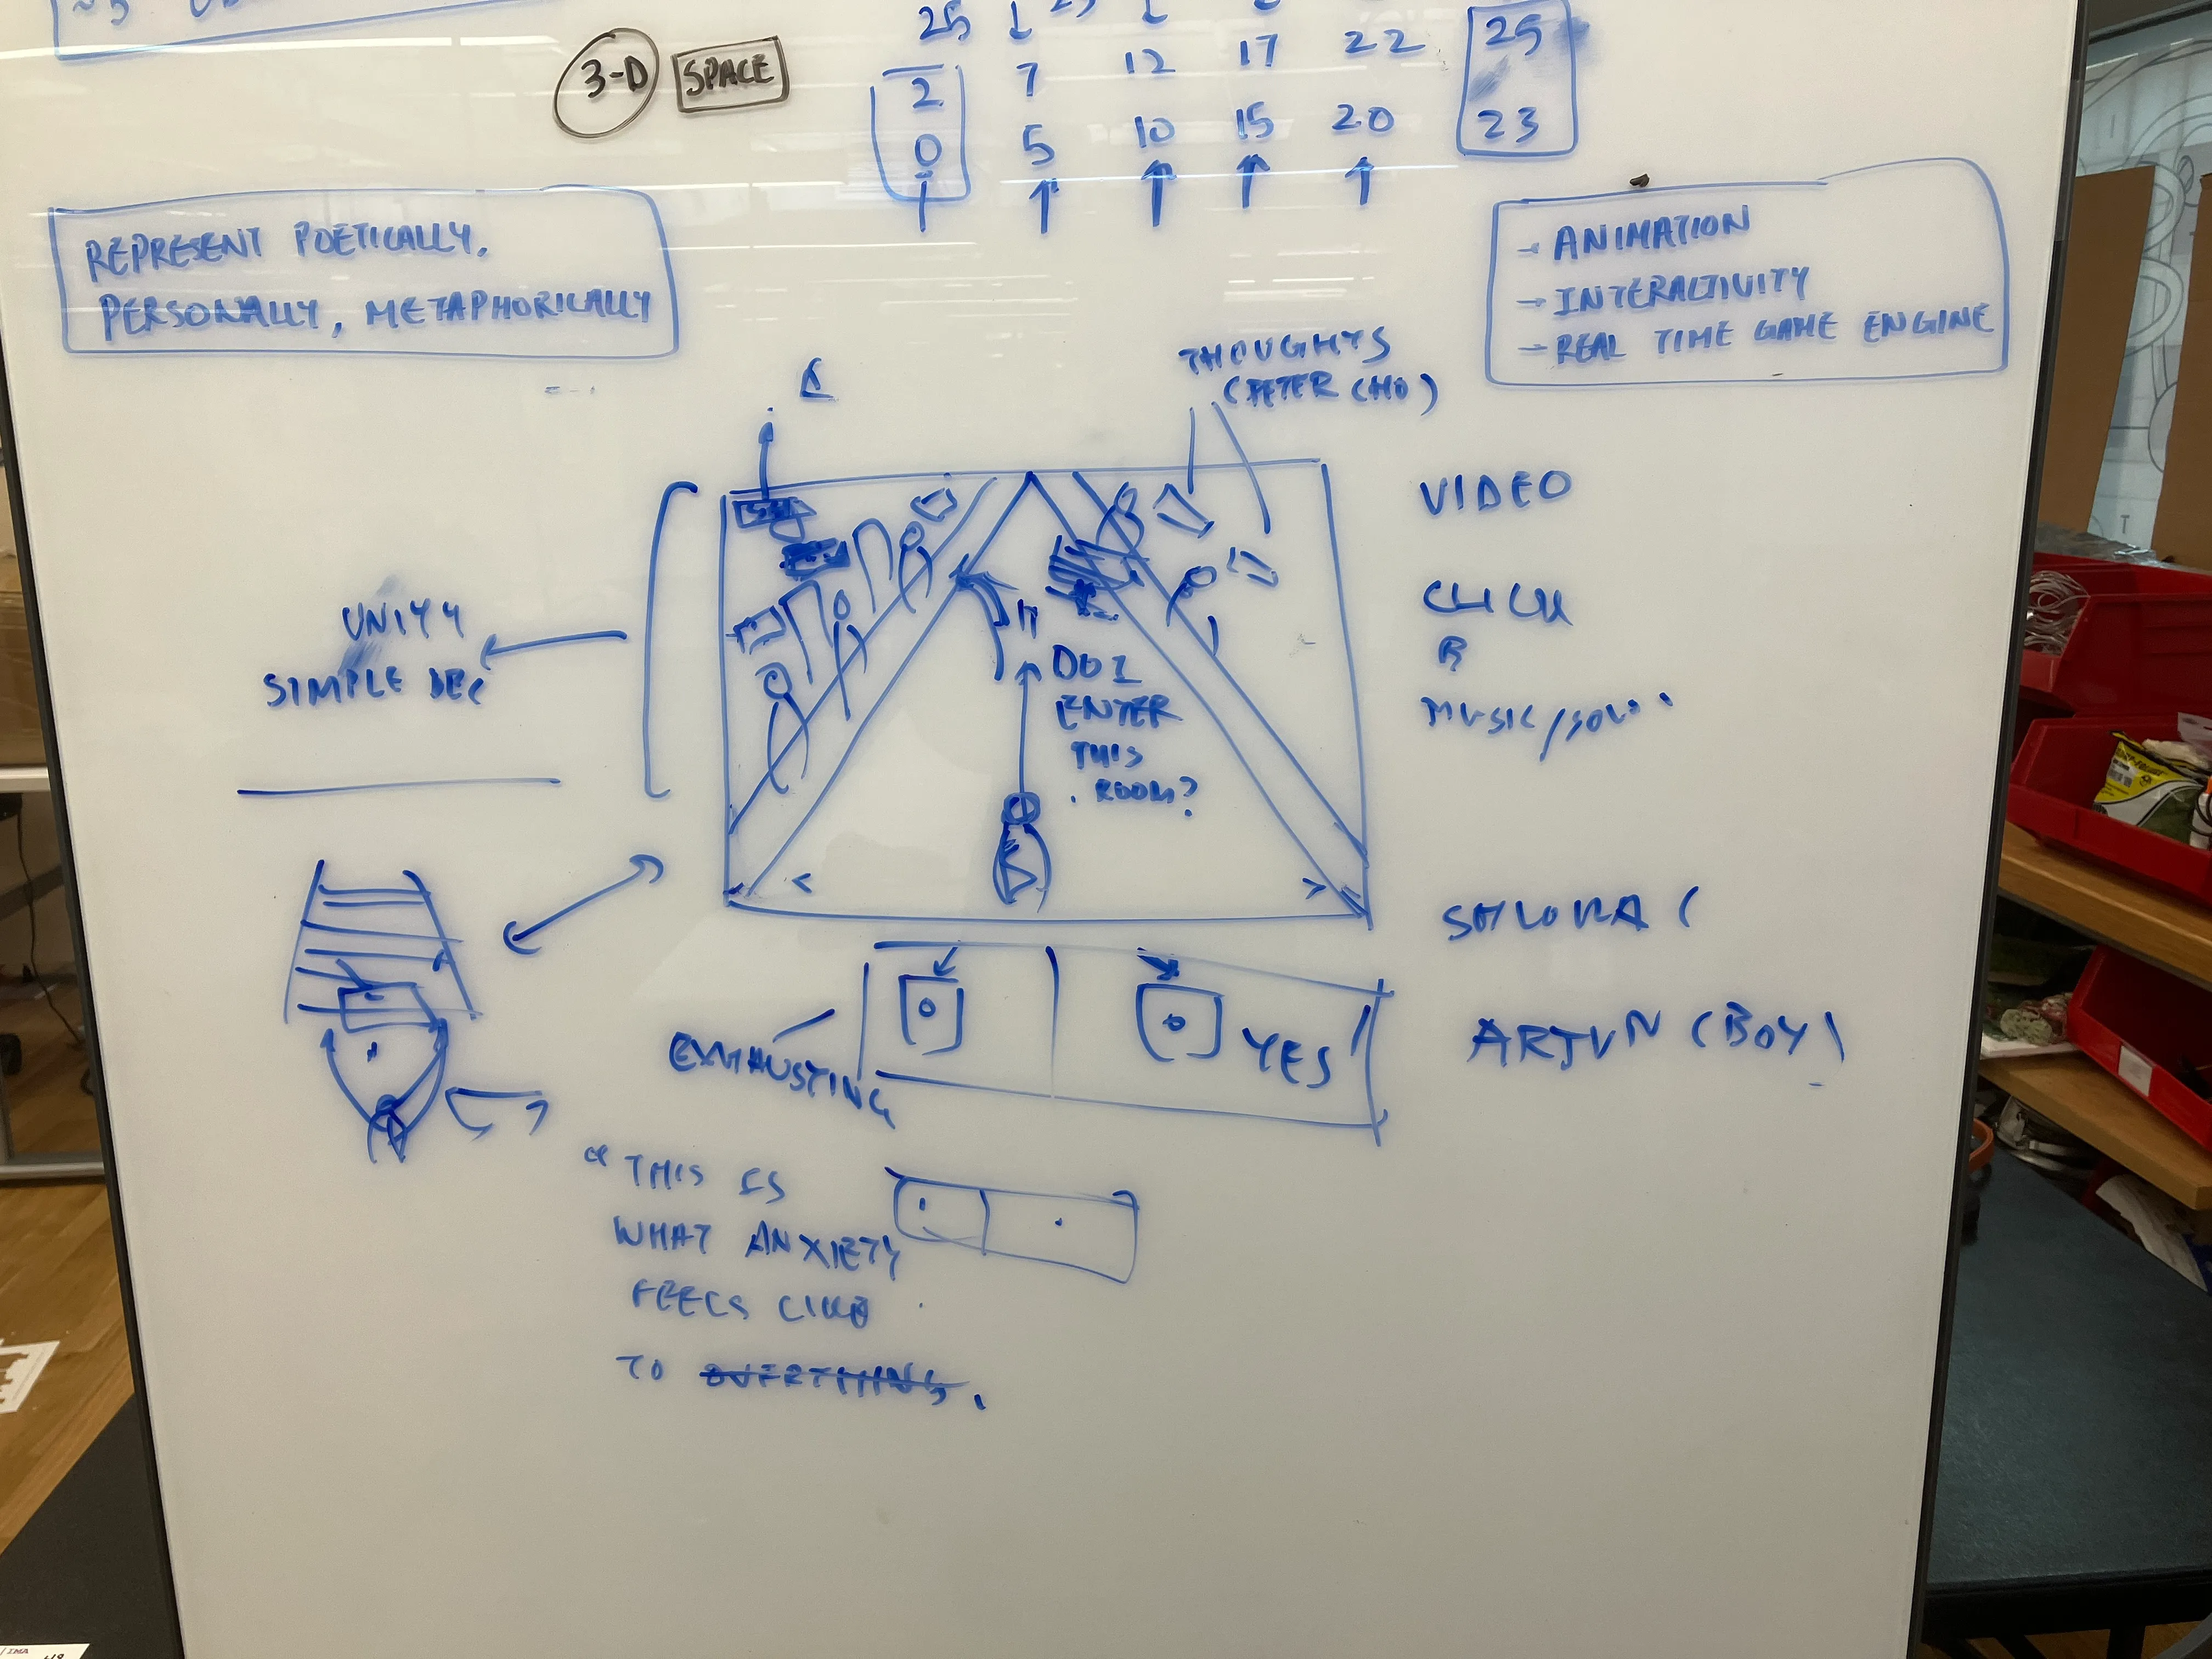 25
3-D SPACE
7 12 17 22 25
2
0 5 10 15 20 23
REPRESENT POETICALLY,
PERSONALLY, METAPHORICALLY
→ ANIMATION
→ INTERACTIVITY
→ REAL TIME GAME ENGINE
THOUGHTS
(PETER CHO)
VIDEO
UNITY
SIMPLE
DO I
ENTER
THIS
ROOM?
MUSIC/
EXHAUSTING
YES
ARJUN (BOY)
"THIS IS
WHAT ANXIETY
FEELS LIKE
TO OVERTHING.